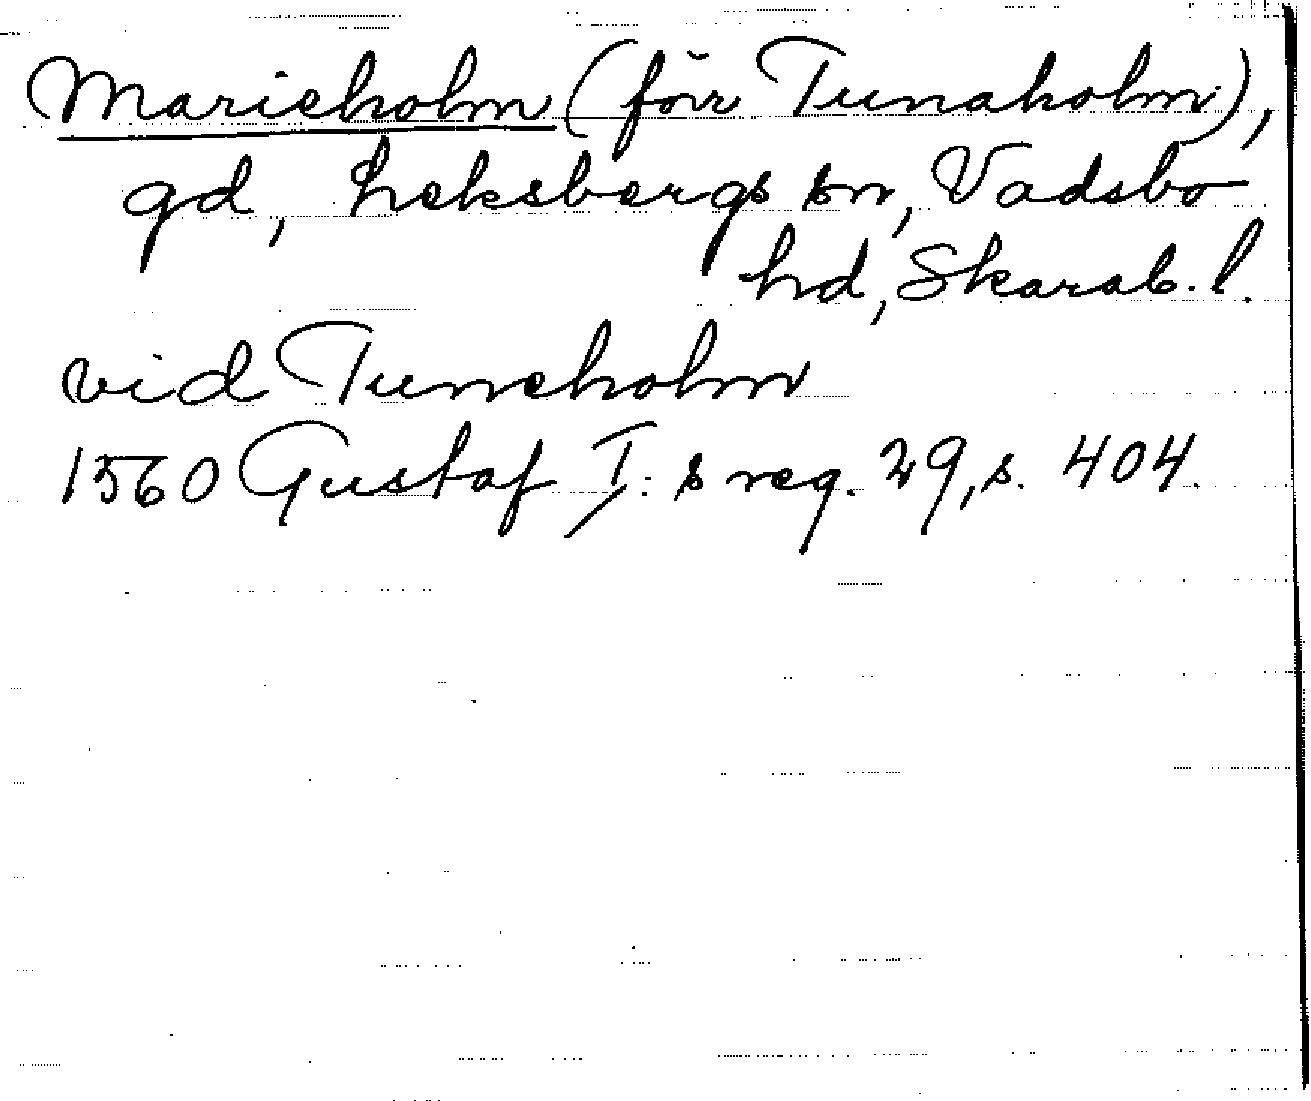 Marieholm (förr Tunaholm),
gd, Leksbergs sn, Vadsbo
hd, Skarab. l.
vid Tuneholm
1560 Gustaf I:s reg. 29, s. 404.